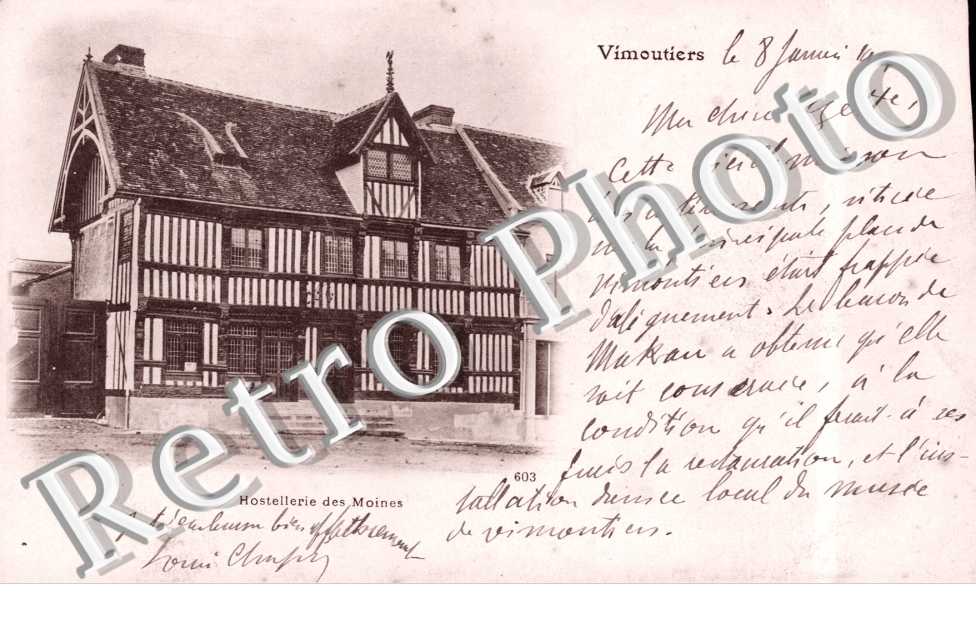 Vimoutiers
le 8 Janvier
Ma chère
Cette vieille maison
des, située
sur la principale place de
Vimoutiers était frappée
d'alignement. Le baron de
Makau a obtenu qu'elle
soit conservée, à la
condition qu'il ferait à ses
frais la restauration, et l'ins-
tallation dans ce local du musée
de Vimoutiers.
603
Hostellerie des Moines
bien affectueusement
Louis
Retro Photo